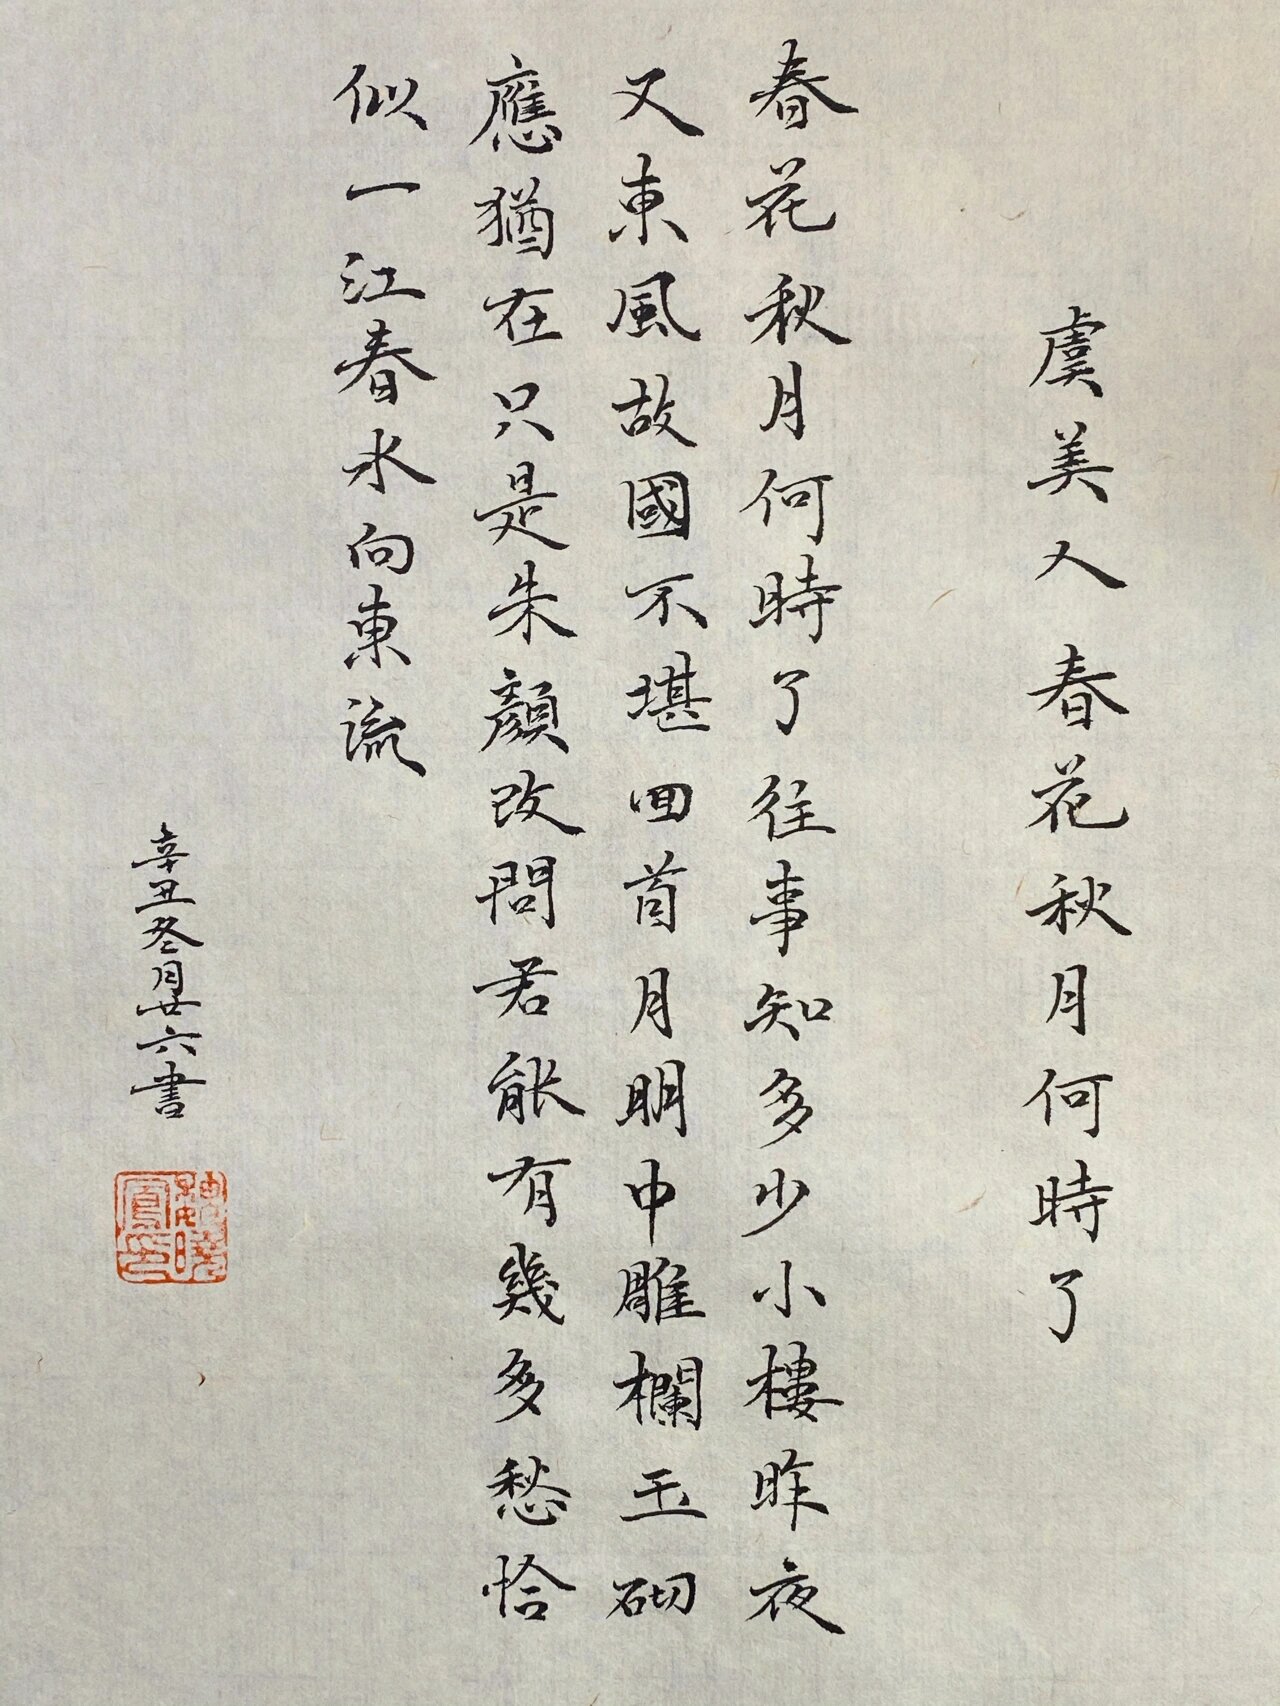 虞美人春花秋月何時了
春花秋月何時了往事知多少小樓昨夜
又東風故國不堪回首月明中雕欄玉砌
應猶在只是朱顏改問君能有幾多愁恰
似一江春水向東流
辛丑冬月廿六書